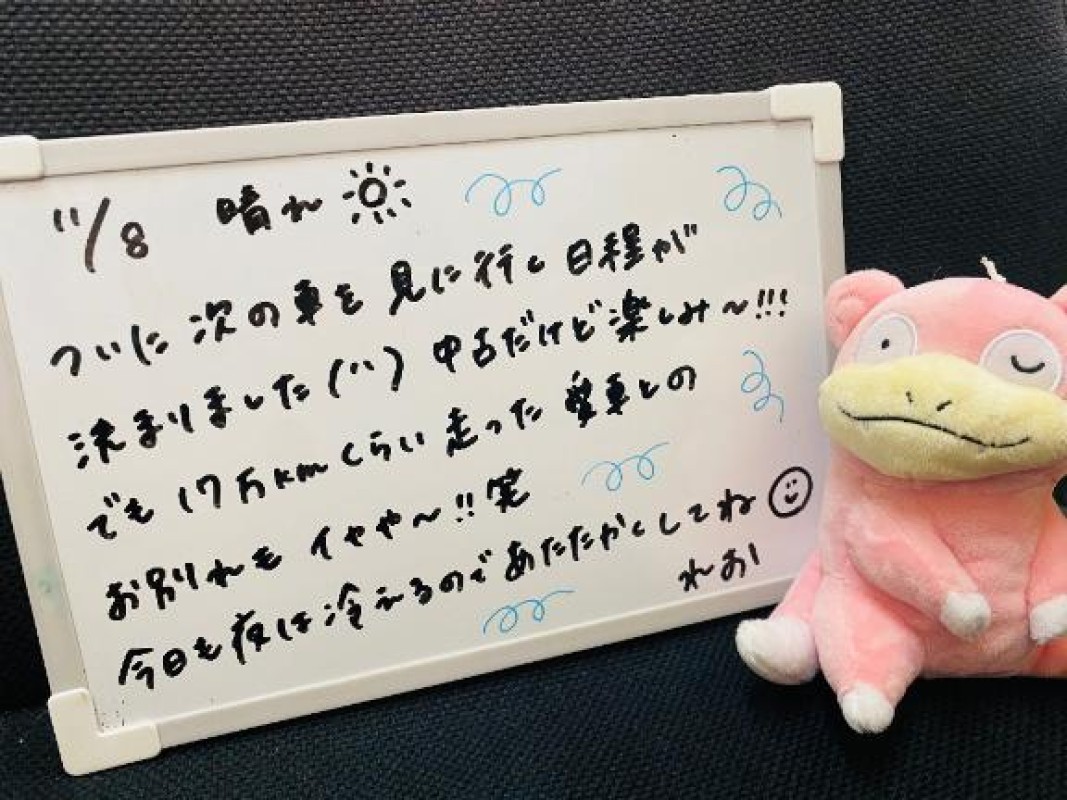 11/8 晴れ
ついに次の車を見に行く日程が
決まりました(¨) 中古だけど楽しみ〜!!!
でも17万kmくらい走った愛車との
お別れもイヤや〜!!笑
今日も夜は冷えるのであたたかくしてね
れおん